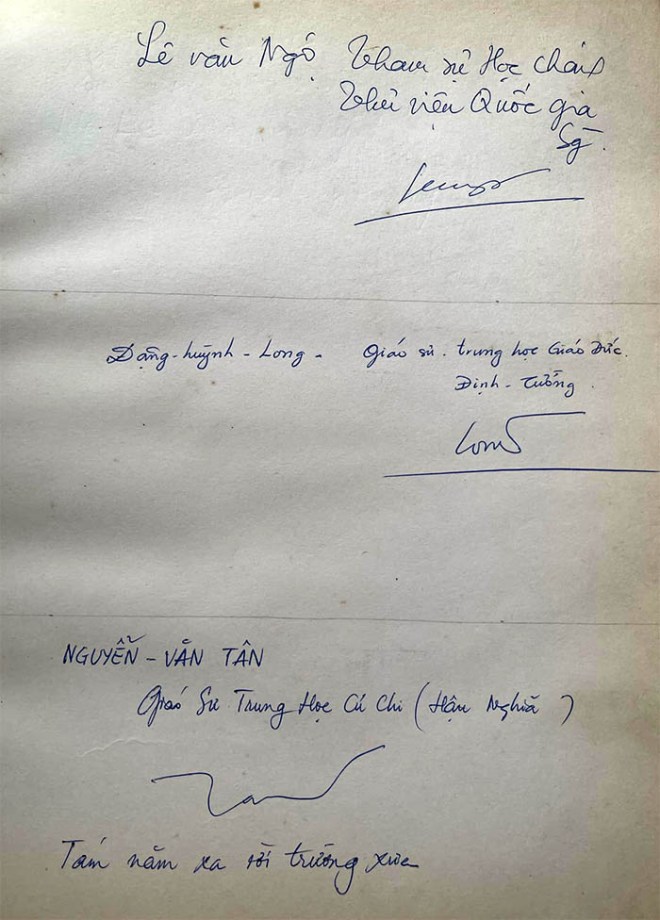 Lê văn Ngọ Tham sự Học chánh
Thư viện Quốc gia
Sg.
Đặng - huỳnh - Long - Giáo sư. trung học Giáo Đức.
Định - Tường.
Long
NGUYỄN - VĂN TÂN
Giáo Sư Trung Học Củ Chi (Hậu Nghĩa)
Tám năm xa rời trường xưa